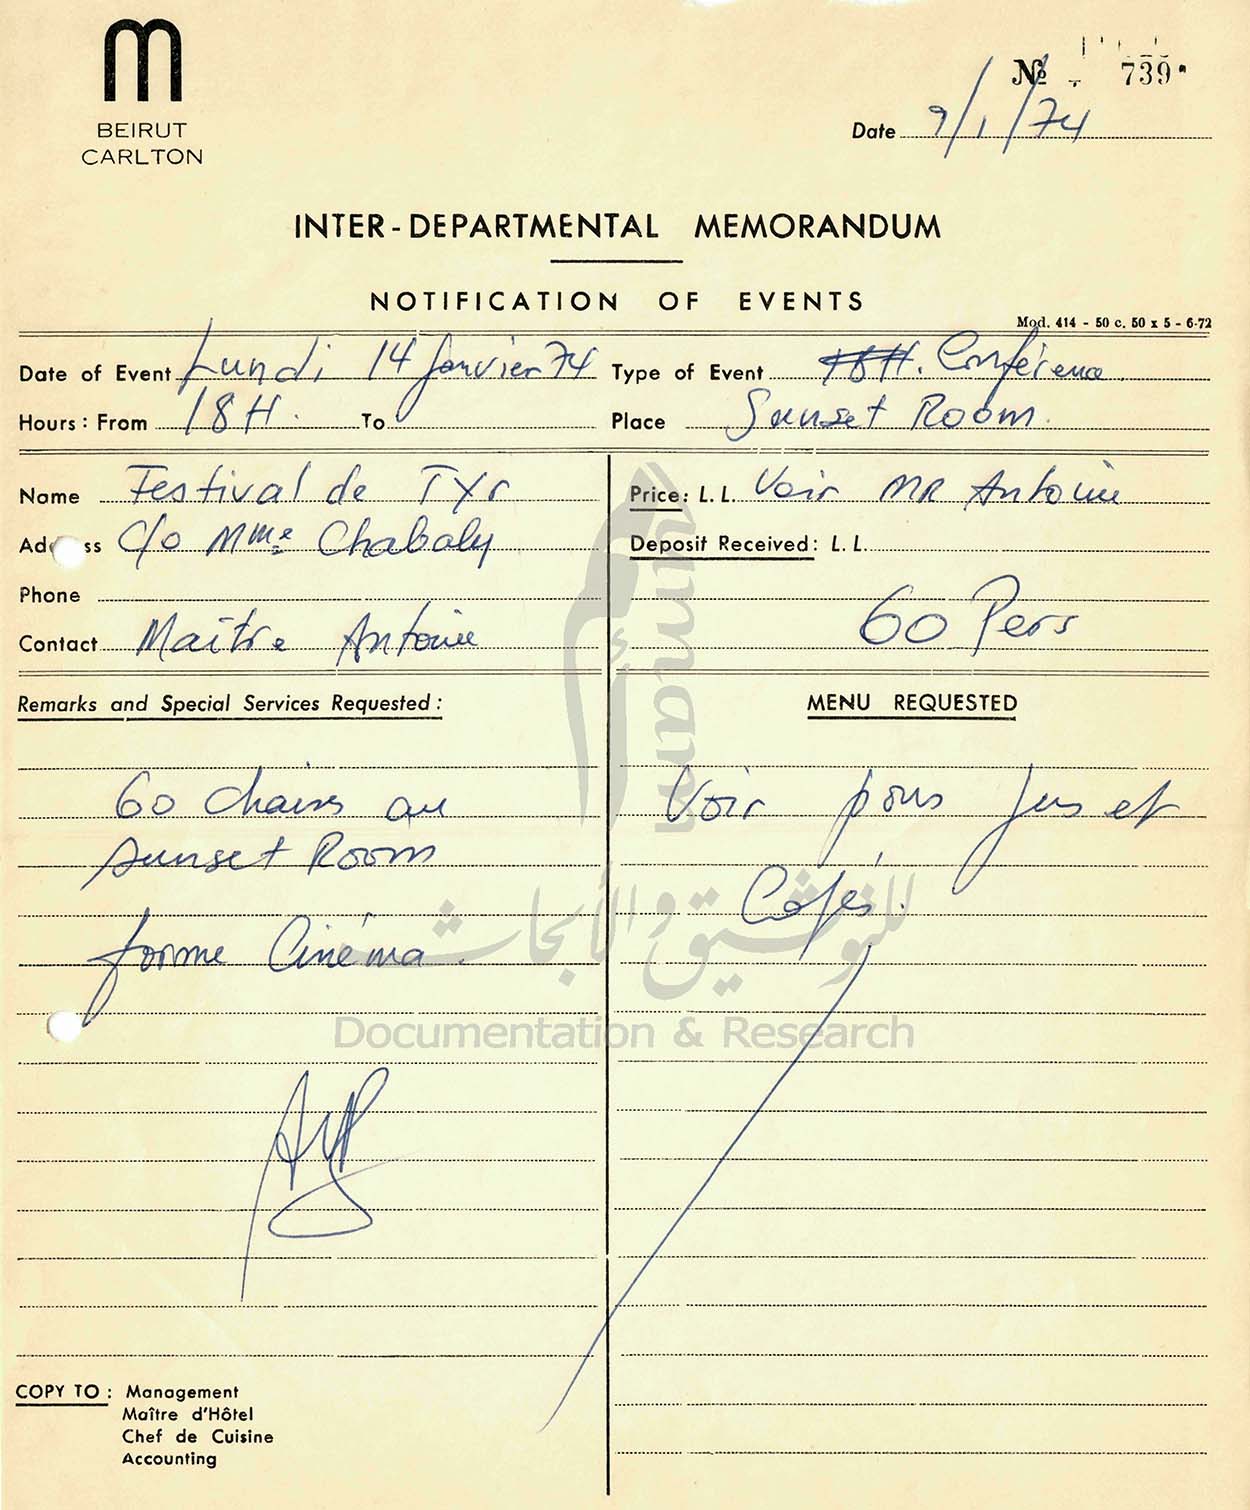 BEIRUT
CARLTON
№ 739
Date 9/1/74
INTER-DEPARTMENTAL MEMORANDUM
NOTIFICATION OF EVENTS
Mod. 414 - 50 c. 50 x 5 - 6-72
Date of Event Lundi 14 Janvier 74 Type of Event 18H. Conférence
Hours: From 18H. To Place Sunset Room.
Name Festival de Tyr
Address c/o Mme Chabaly
Phone
Contact Maître Antoine
Price: L.L. Voir MR Antoine
Deposit Received: L.L.
60 Pers
Remarks and Special Services Requested:
60 chaises au
sunset Room
forme Cinéma.
MENU REQUESTED
Voir pour Jus et
Cafés.
COPY TO: Management
Maître d'Hôtel
Chef de Cuisine
Accounting
umam
للتوثيق والأبحاث
Documentation & Research